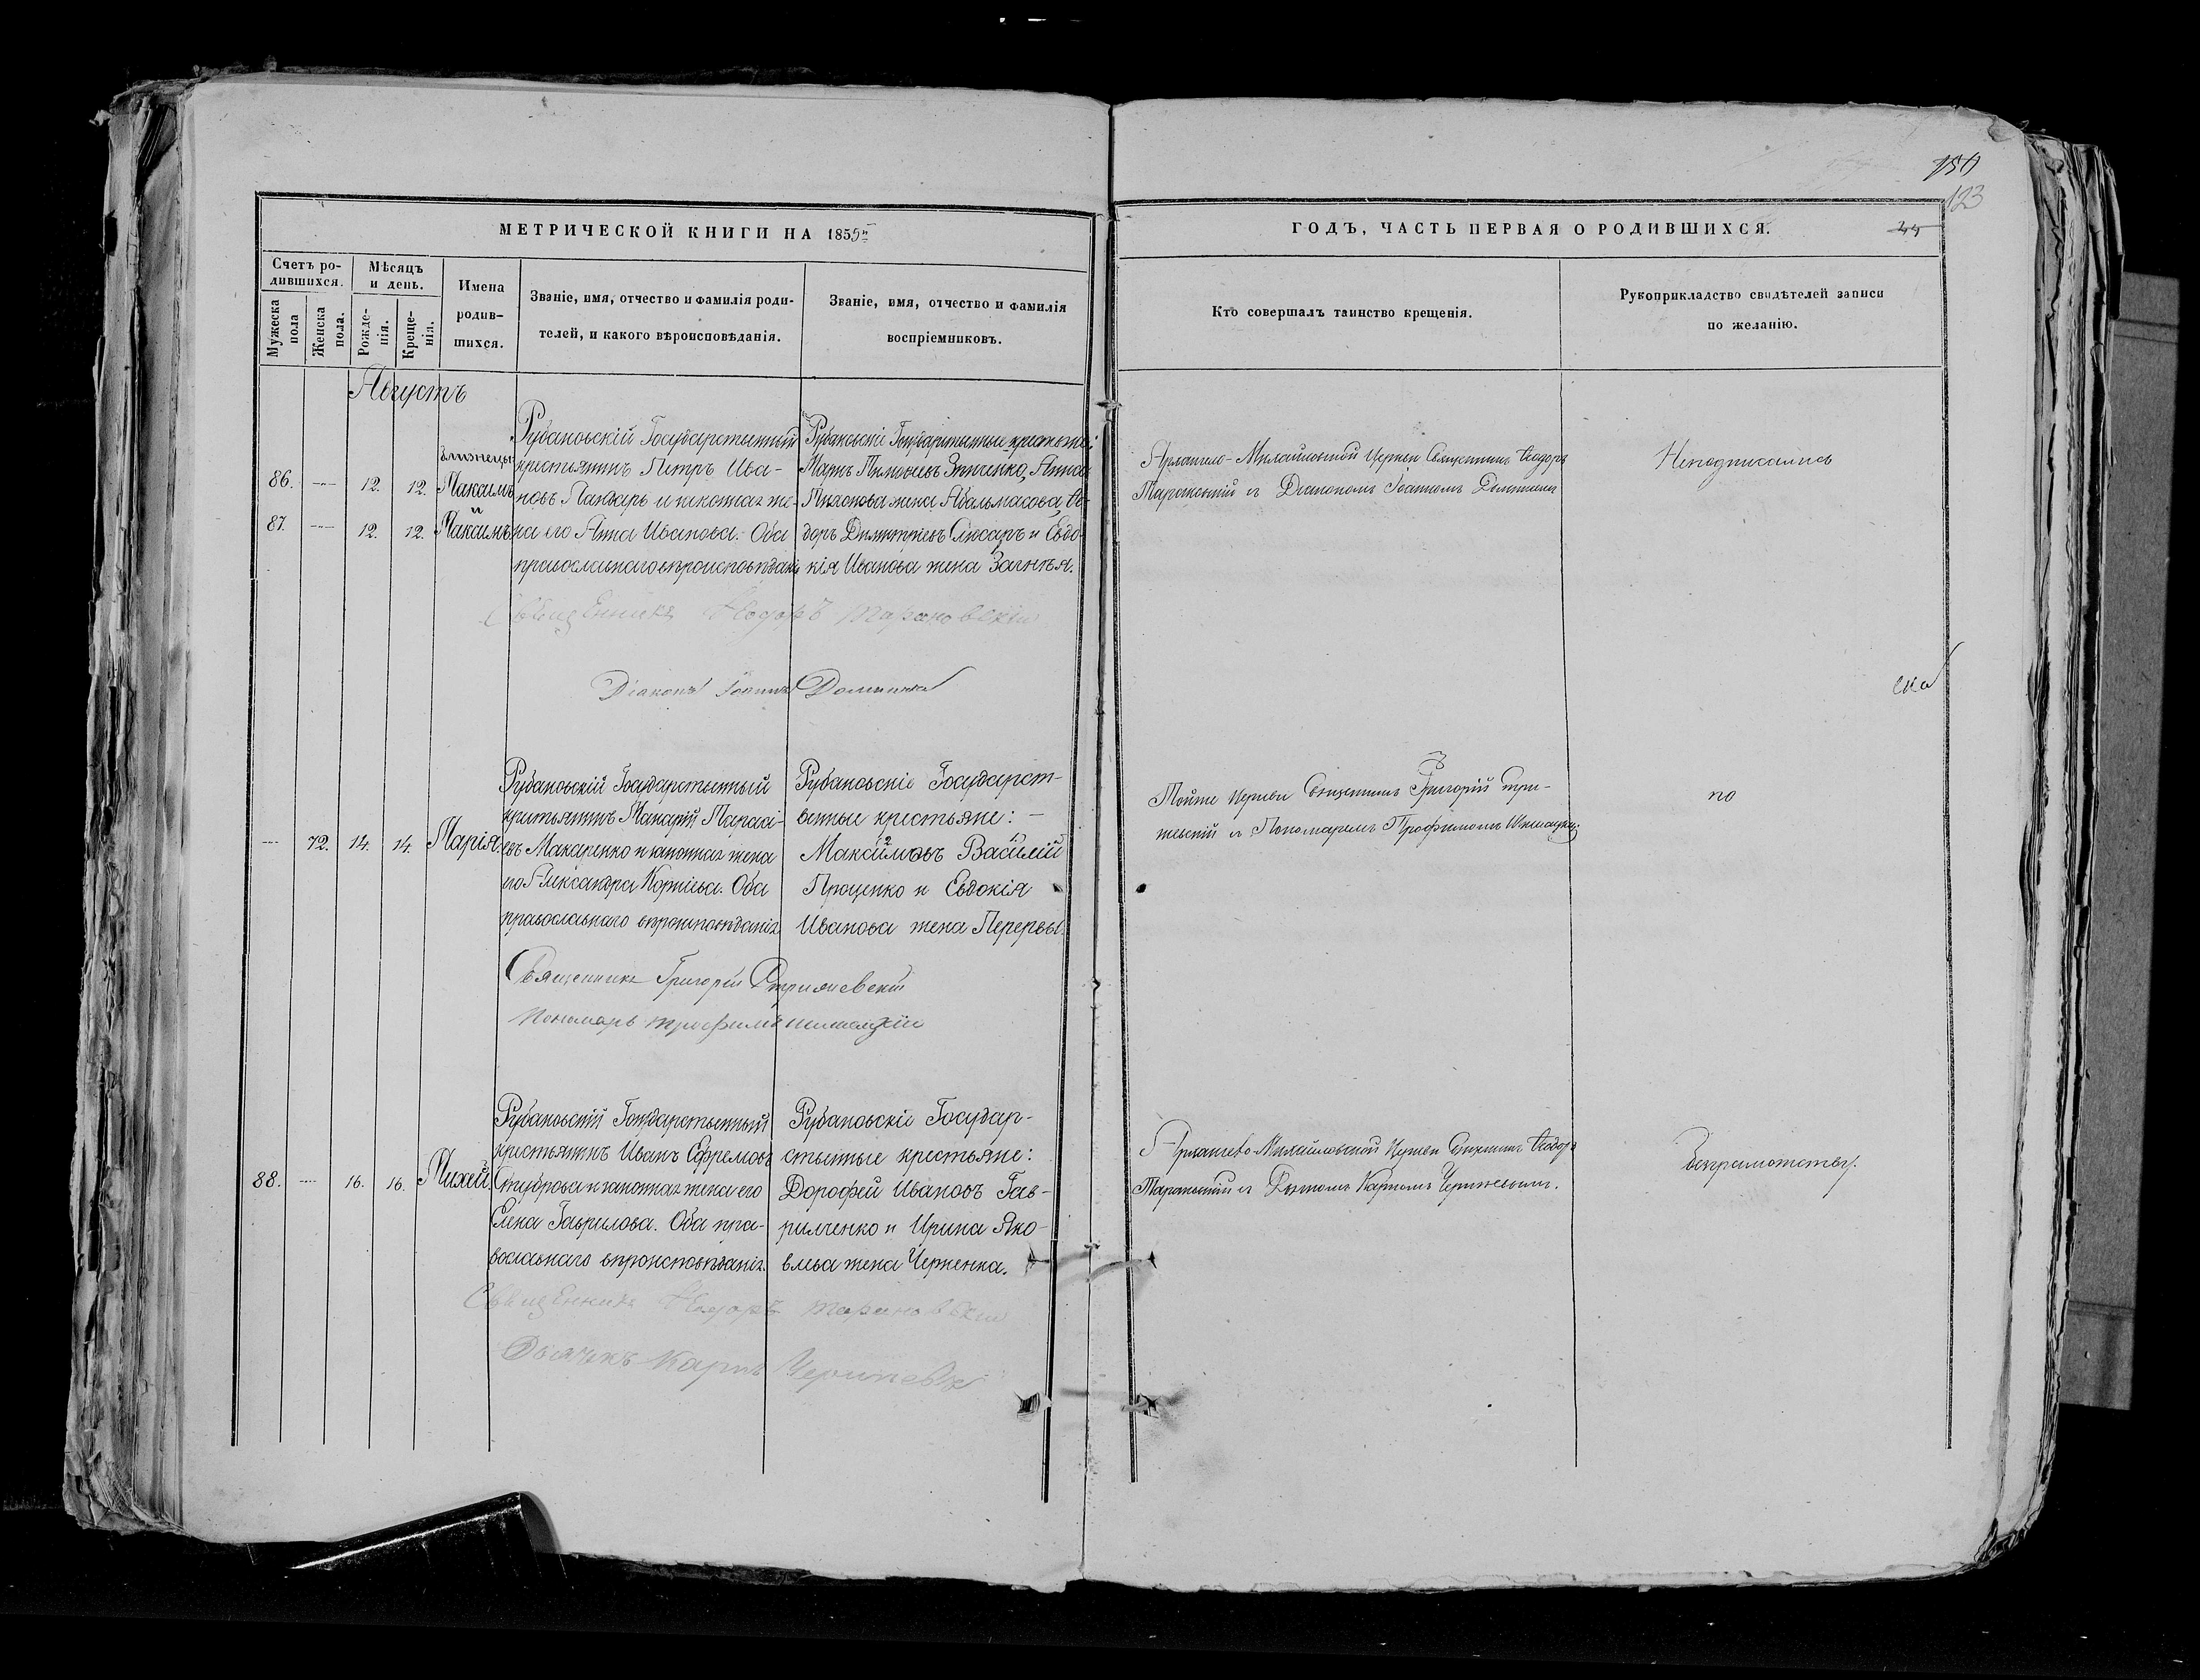 150
123
МЕТРИЧЕСКОЙ КНИГИ НА 1855й
ГОДЪ, ЧАСТЬ ПЕРВАЯ О РОДИВШИХСЯ.
Счетъ ро-
дившихся.
Мѣсяцъ
и день.
Мужеска
пола
Женска
пола.
Рожде-
нія.
Креще-
нія.
Имена
родив-
шихся.
Званіе, имя, отчество и фамилія роди-
телей, и какого вѣроисповѣданія.
Званіе, имя, отчество и фамилія
воспріемниковъ.
Кто совершалъ таинство крещенія.
Рукоприкладство свидѣтелей записи
по желанію.
Августъ
86. 12. 12.
87. 12. 12.
близнецы
Максимъ
и
Рубановскій Государственный
крестьянинъ Петръ Ива-
новъ и законная же-
на его Анна Иванова. Оба
православнаго вѣроисповѣданія
Рубановскіе Государственные крестьяне:
Анна
жена Ѳе-
доръ Димитріевъ Слюсаръ и Евдо-
кія Иванова жена Загнѣя.
Архангело-Михайловской Церкви Священникъ Ѳеодоръ
Тарановскій съ Діакономъ Іоанномъ
Неподписались
Священникъ Ѳеодоръ Тарановскій
Діаконъ Іоаннъ
ска
72. 14. 14. Марія
Рубановскій Государственный
крестьянинъ Макарій
Макаренко и законная жена
его Александра Корніева. Оба
православнаго вѣроисповѣданія
Рубановскіе Государст-
венные крестьяне: -
Максимовъ Василій
Проценко и Евдокія
Иванова жена Перервы.
Тойже Церкви Священникъ Григорій Стри-
жевскій съ Пономаремъ Трофимомъ
по
Священникъ Григорій Стрижевскій
Пономарь Трофимъ
88. 16. 16. Михей.
Рубановскій Государственный
крестьянинъ Иванъ Ефремовъ
и законная жена его
Елена Гаврилова. Оба пра-
вославнаго вѣроисповѣданія.
Рубановскіе Государ-
ственные крестьяне:
Дорофей Ивановъ Гав-
рилченко и Ирина Яко-
влева жена Черненка.
Архангело-Михайловской Церкви Священникъ Ѳеодоръ
Тарановскій съ Дьячкомъ Карпомъ
безграмотству.
Священникъ Ѳеодоръ Тарановскій
Дьячекъ Карпъ